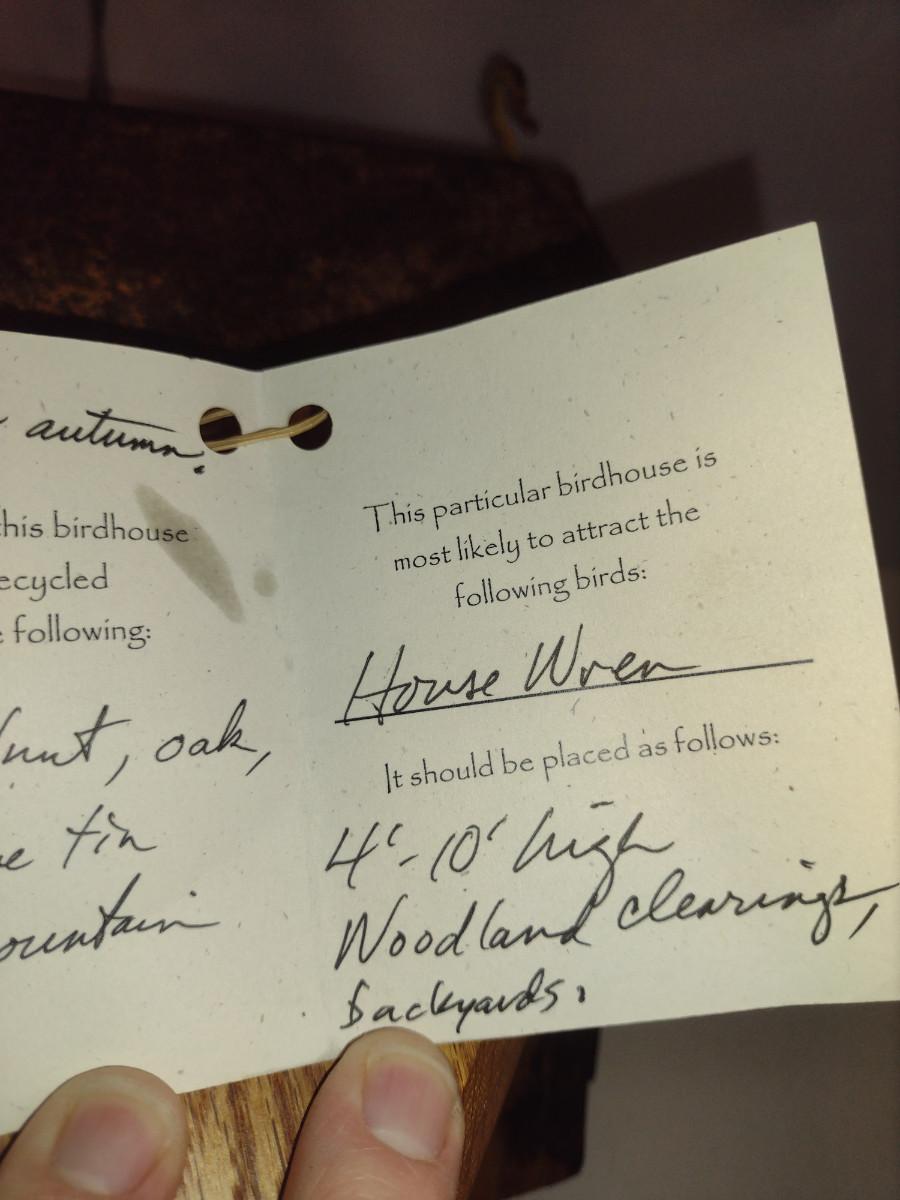 autumn.
this birdhouse
following:
oak,
tin
This particular birdhouse is
most likely to attract the
following birds:
House Wren
It should be placed as follows:
4'-10' high
Woodland clearings,
backyards.